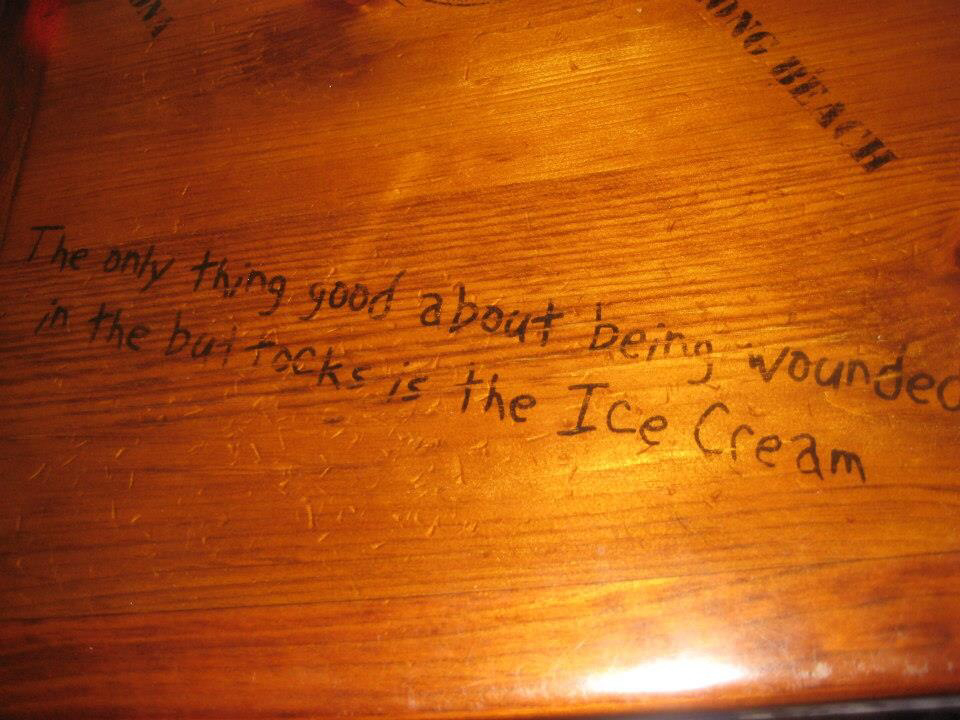 ONG BEACH
The only thing good about being wounded
in the buttocks is the Ice Cream